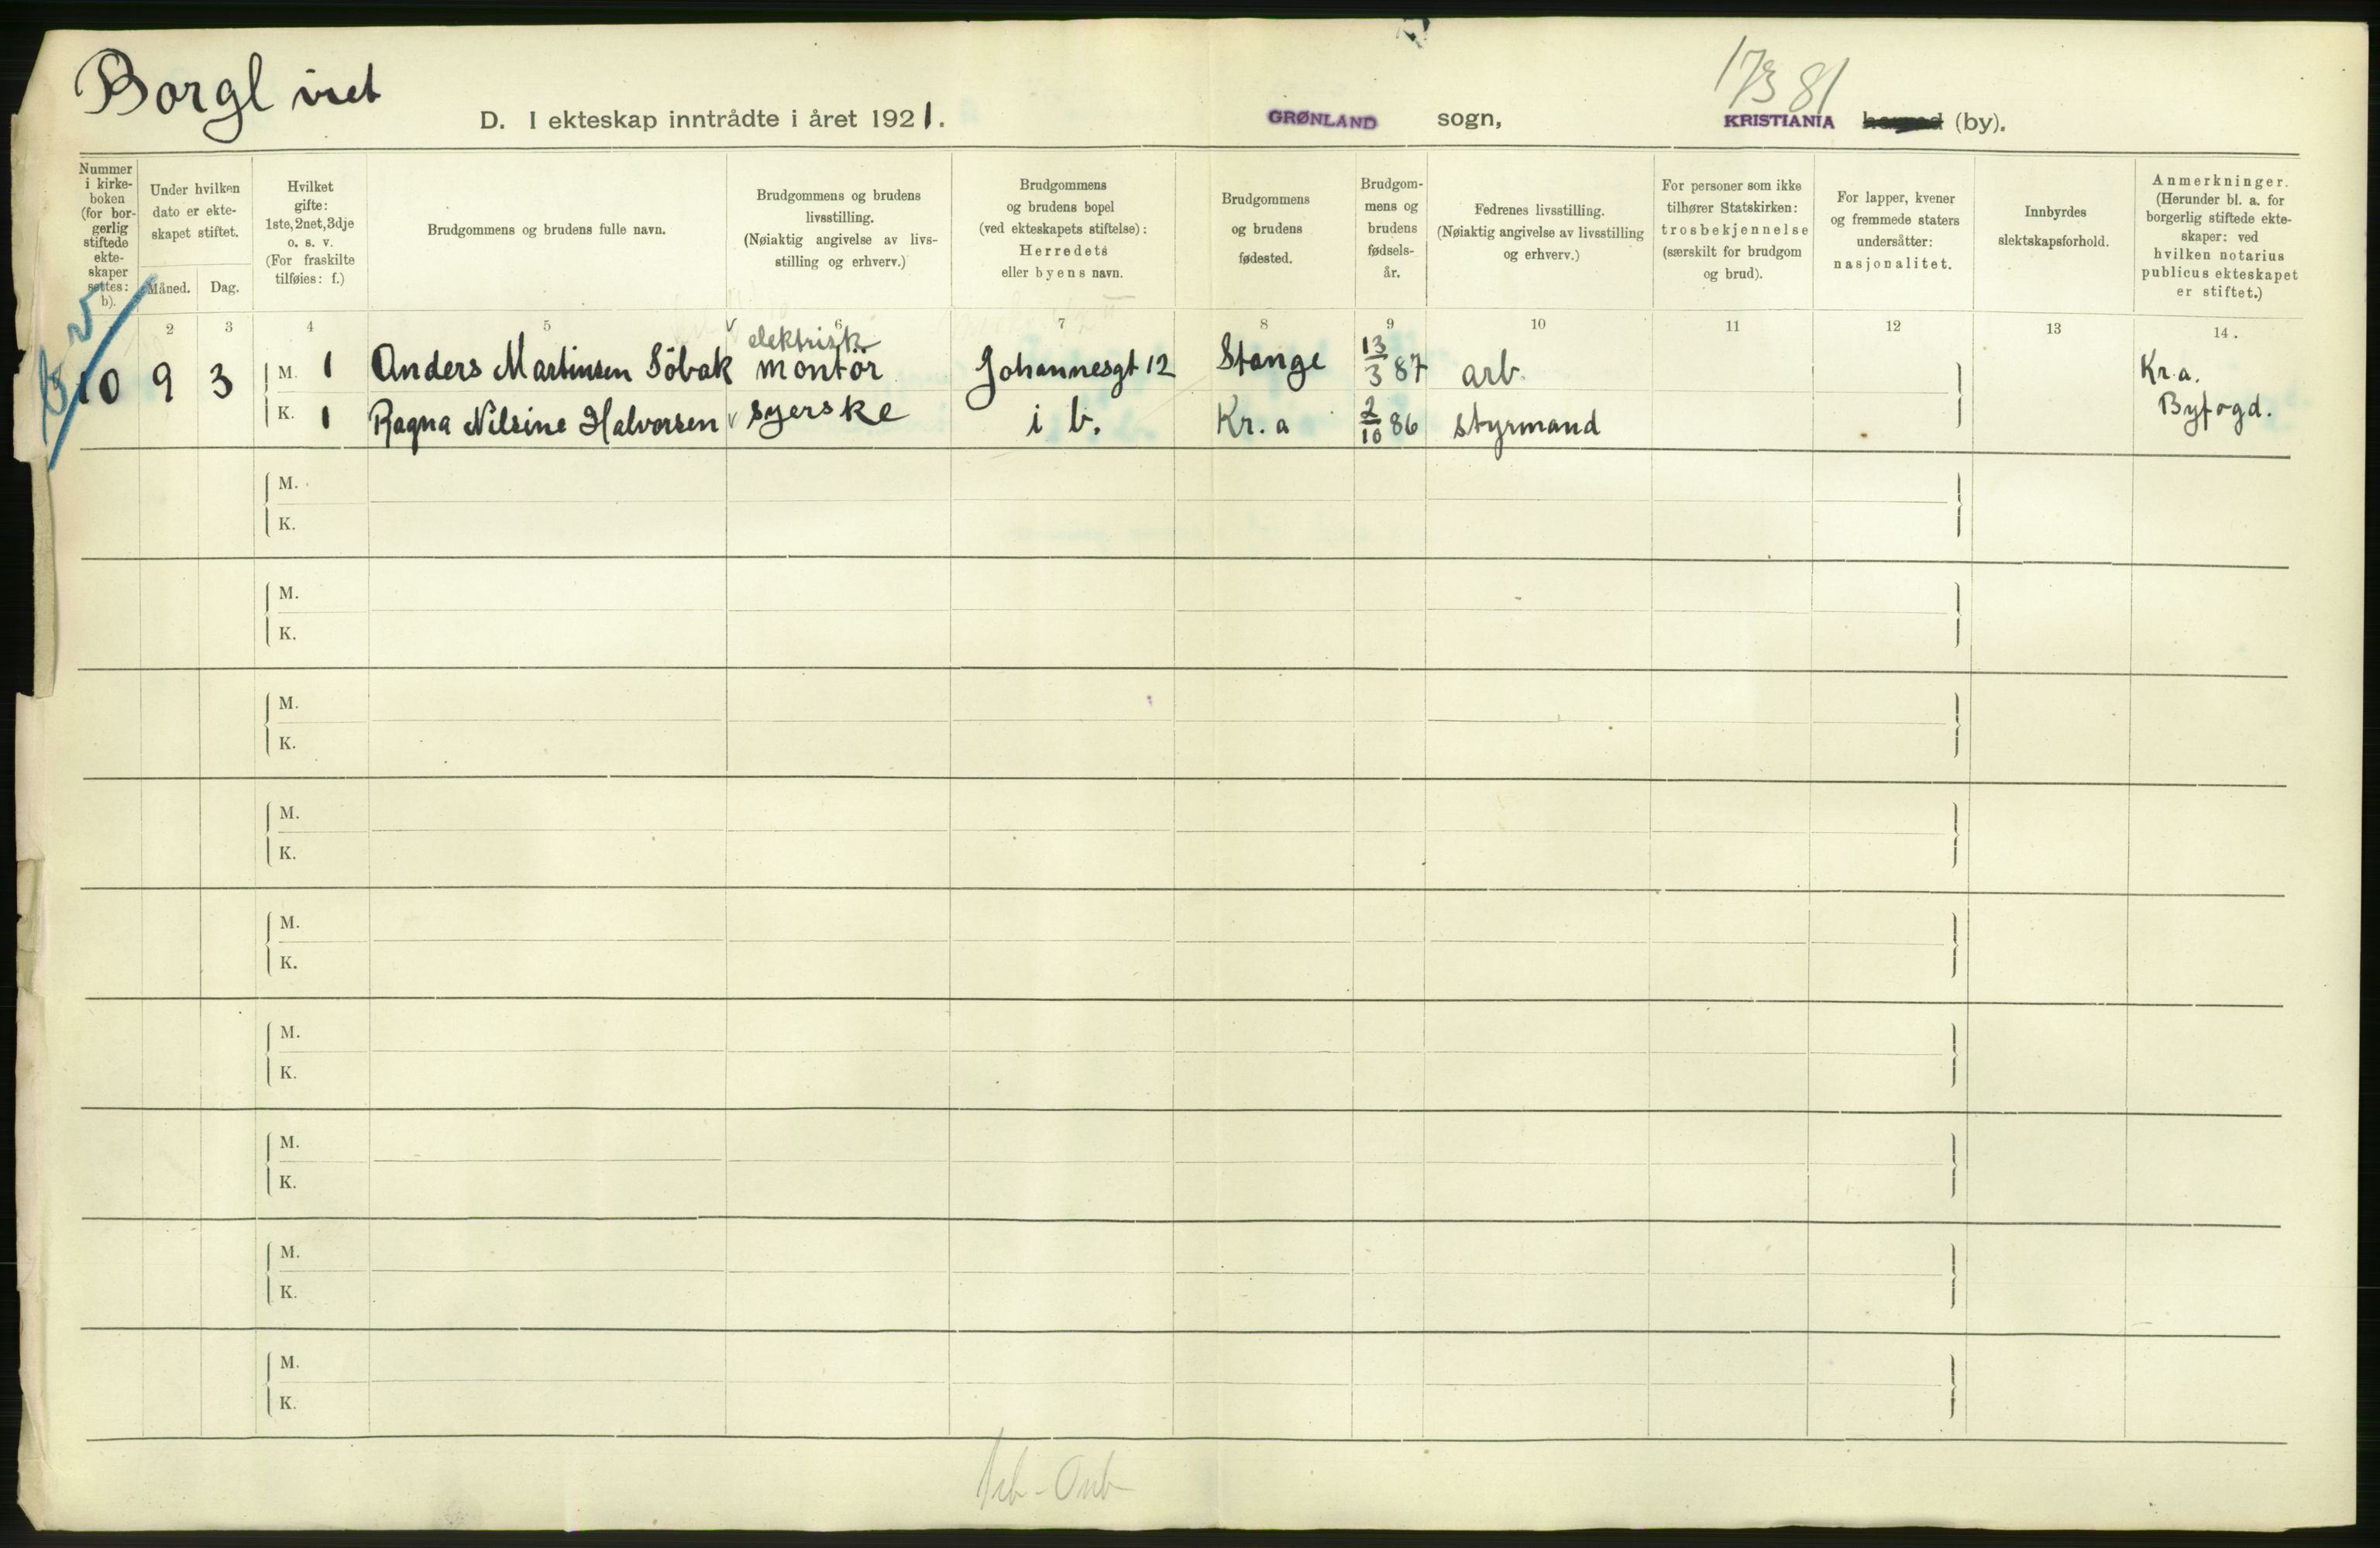 Borgl viet
1781
D. I ekteskap inntrådte i året 1921.
GRØNLAND sogn,
KRISTIANIA herred (by).
Nummer i kirkeboken (for borgerlig stiftede ekteskaper settes: b).
Under hvilken dato er ekteskapet stiftet.
Måned. Dag.
Hvilket gifte: 1ste, 2net, 3dje o. s. v. (For fraskilte tilføies: f.)
Brudgommens og brudens fulle navn.
Brudgommens og brudens livsstilling. (Nøiaktig angivelse av livsstilling og erhverv.)
Brudgommens og brudens bopel (ved ekteskapets stiftelse): Herredets eller byens navn.
Brudgommens og brudens fødested.
Brudgommens og brudens fødselsår.
Fedrenes livsstilling. (Nøiaktig angivelse av livsstilling og erhverv.)
For personer som ikke tilhører Statskirken: trosbekjennelse (særskilt for brudgom og brud).
For lapper, kvener og fremmede staters undersåtter: nasjonalitet.
Innbyrdes slektskapsforhold.
Anmerkninger. (Herunder bl. a. for borgerlig stiftede ekteskaper: ved hvilken notarius publicus ekteskapet er stiftet.)
2 3 4 5 6 7 8 9 10 11 12 13 14.
10 9 3 M. 1 Anders Martinsen Söbak elektrisk montör Johannesgt 12 Stange 13/3 87 arb. Kr.a.
K. 1 Ragna Nilsine Halvorsen syerske i b. Kr.a 2/10 86 styrmand Byfogd.
M.
K.
M.
K.
M.
K.
M.
K.
M.
K.
M.
K.
M.
K.
M.
K.
M.
K.